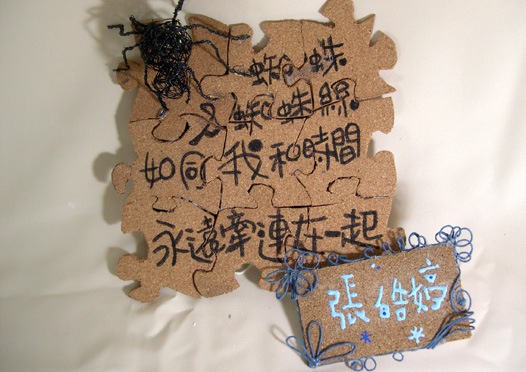 蜘蛛
又蜘蛛絲
如同我和時間
永遠牽連在一起
張皓婷